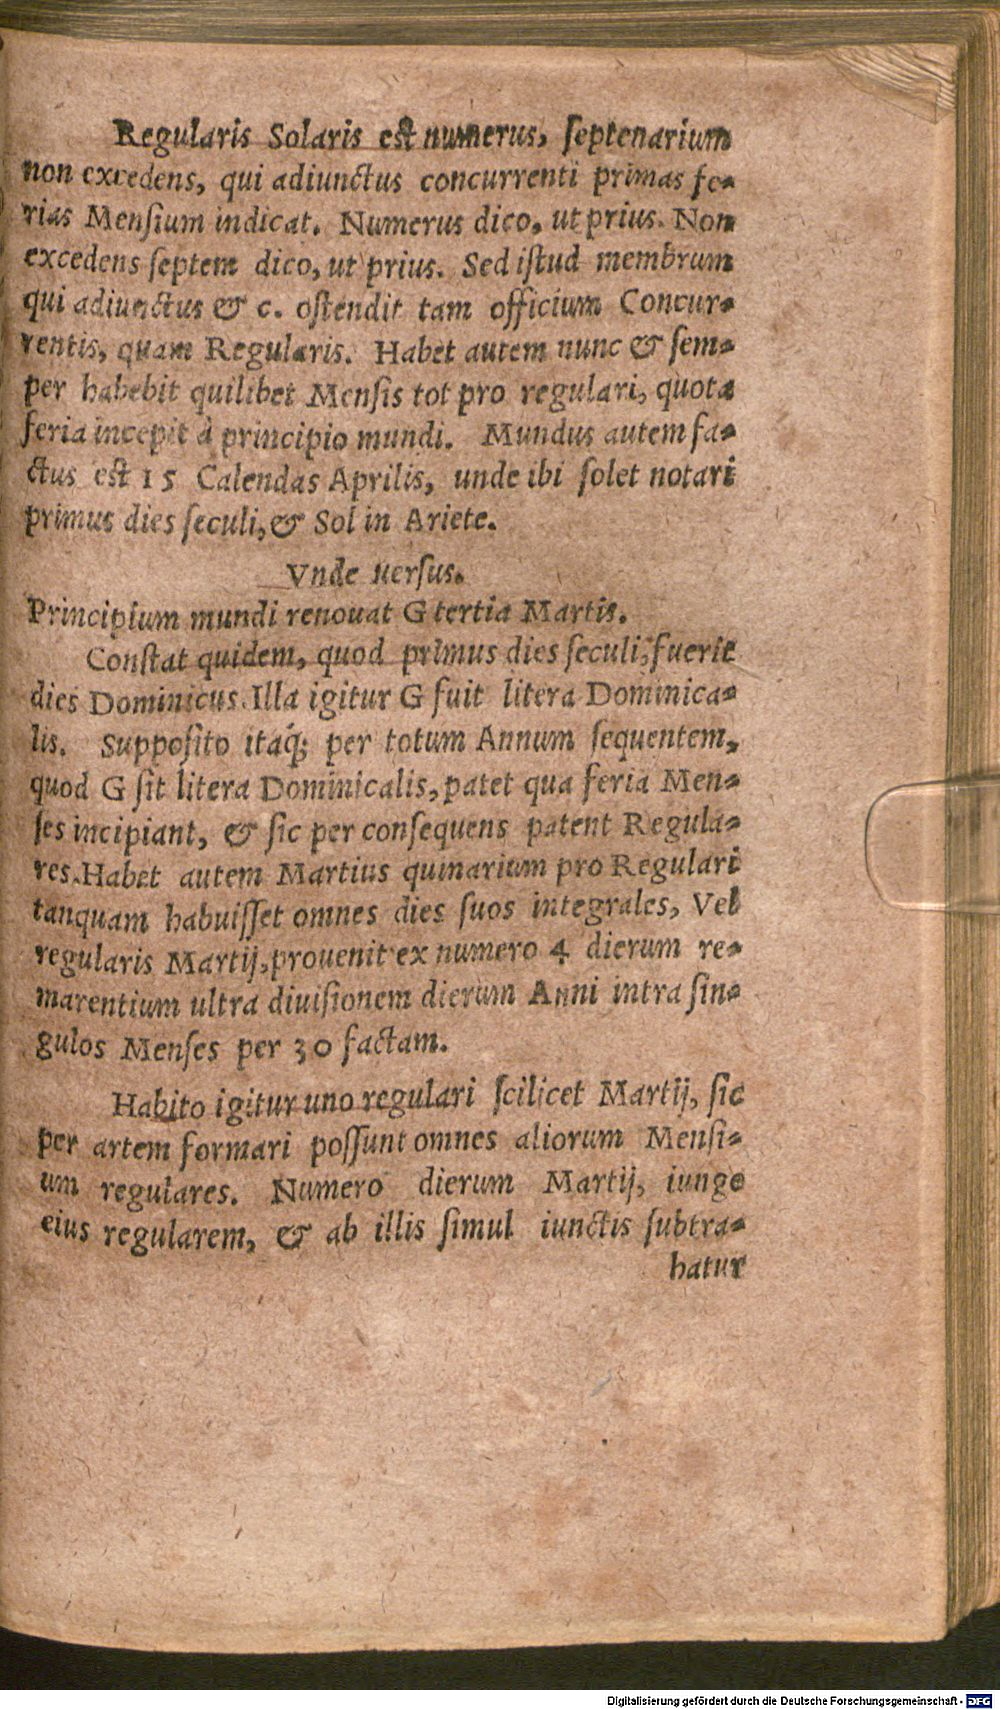 Regularis Solaris est numerus, ſeptenarium
non excedens, qui adiunctus concurrenti primas fe-
rias Menſium indicat. Numerus dico, ut prius. Non
excedens ſeptem dico, ut prius. Sed iſtud membrum
qui adiunctus & c. oſtendit tam officium Concur-
rentis, quam Regularis. Habet autem nunc & ſem-
per habebit quilibet Menſis tot pro regulari, quota
feria incepit à principio mundi. Mundus autem fa-
ctus est 15 Calendas Aprilis, unde ibi ſolet notari
primus dies ſeculi, & Sol in Ariete.
Vnde uerſus.
Principium mundi renouat G tertia Martis.
Conſtat quidem, quod primus dies ſeculi, fuerit
dies Dominicus. Illa igitur G fuit litera Dominica-
lis. Suppoſito itaq́; per totum Annum ſequentem,
quod G ſit litera Dominicalis, patet qua feria Men-
ſes incipiant, & ſic per conſequens patent Regula-
res. Habet autem Martius quinarium pro Regulari
tanquam habuiſſet omnes dies ſuos integrales, Vel
regularis Martij, prouenit ex numero 4 dierum re-
marentium ultra diuiſionem dierum Anni intra ſin-
gulos Menſes per 30 factam.
Habito igitur uno regulari ſcilicet Martij, ſic
per artem formari poſſunt omnes aliorum Menſi-
um regulares. Numero dierum Martij, iunge
eius regularem, & ab illis ſimul iunctis ſubtra-
hatur
Digitalisierung gefördert durch die Deutsche Forschungsgemeinschaft - DFG